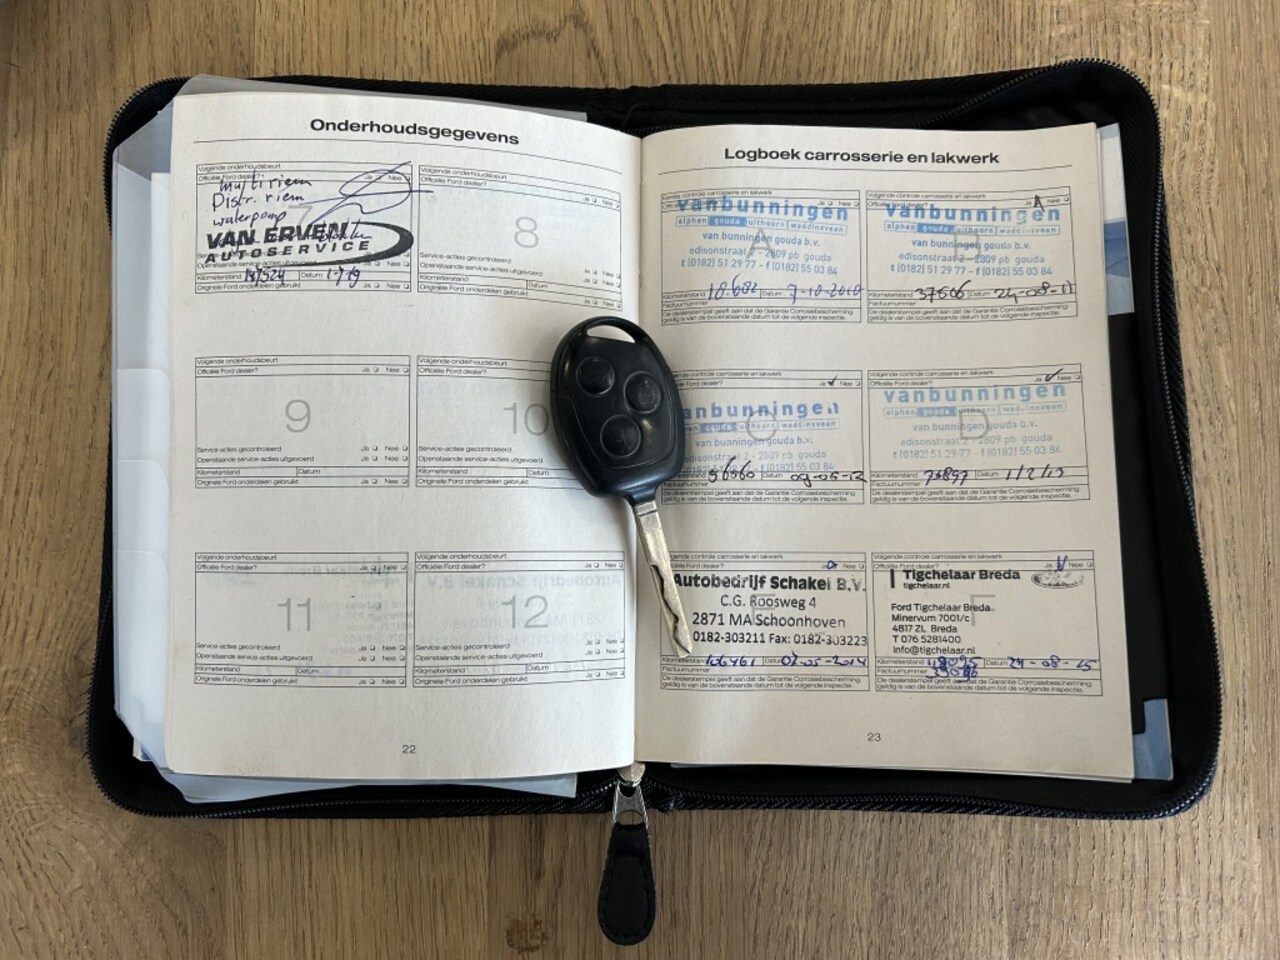 Onderhoudsgegevens
Volgende onderhoudsbeurt
Officiële Ford dealer? Ja Nee
Multiriem
Distr. riem
waterpomp
7
VAN ERVEN
AUTOSERVICE
Kilometerstand Datum 1-7-19
Originele Ford onderdelen gebruikt Ja Nee
Volgende onderhoudsbeurt
Officiële Ford dealer? Ja Nee
8
Service-acties gecontroleerd
Openstaande service-acties uitgevoerd Ja Nee
Kilometerstand Datum
Originele Ford onderdelen gebruikt Ja Nee
Volgende onderhoudsbeurt
Officiële Ford dealer? Ja Nee
9
Service-acties gecontroleerd Ja Nee
Openstaande service-acties uitgevoerd Ja Nee
Kilometerstand Datum
Originele Ford onderdelen gebruikt Ja Nee
Volgende onderhoudsbeurt
Officiële Ford dealer?
10
Service-acties gecontroleerd
Openstaande service-acties uitgevoerd
Kilometerstand Datum
Originele Ford onderdelen gebruikt
Volgende onderhoudsbeurt
Officiële Ford dealer? Ja Nee
11
Service-acties gecontroleerd Ja Nee
Openstaande service-acties uitgevoerd Ja Nee
Kilometerstand Datum
Originele Ford onderdelen gebruikt Ja Nee
Volgende onderhoudsbeurt
Officiële Ford dealer? Ja Nee
12
Service-acties gecontroleerd Ja Nee
Openstaande service-acties uitgevoerd Ja Nee
Kilometerstand Datum
Originele Ford onderdelen gebruikt Ja Nee
22
Logboek carrosserie en lakwerk
Eerste controle carrosserie en lakwerk
Ja Nee
vanbunningen
alphen gouda uithoorn waddinxveen
A
van bunningen gouda b.v.
edisonstraat 2 - 2809 pb gouda
t (0182) 51 29 77 - f (0182) 55 03 84
Kilometerstand 18.682 Datum 7-10-2010
Factuurnummer
De dealerstempel geeft aan dat de Garantie Corrosiebescherming
geldig is van de bovenstaande datum tot de volgende inspectie.
Volgende controle carrosserie en lakwerk
Officiële Ford dealer? Ja Nee
vanbunningen
alphen gouda uithoorn waddinxveen
B
van bunningen gouda b.v.
edisonstraat 2 - 2809 pb gouda
t (0182) 51 29 77 - f (0182) 55 03 84
Kilometerstand 37506 Datum 24-08-11
Factuurnummer
De dealerstempel geeft aan dat de Garantie Corrosiebescherming
geldig is van de bovenstaande datum tot de volgende inspectie.
controle carrosserie en lakwerk
Ford dealer? Ja Nee
vanbunningen
alphen gouda uithoorn waddinxveen
C
van bunningen gouda b.v.
edisonstraat 2 - 2809 pb gouda
f (0182) 55 03 84
Kilometerstand 56560 Datum
Factuurnummer
De dealerstempel geeft aan dat de Garantie Corrosiebescherming
geldig is van de bovenstaande datum tot de volgende inspectie.
Volgende controle carrosserie en lakwerk
Officiële Ford dealer? Ja Nee
vanbunningen
alphen gouda uithoorn waddinxveen
D
van bunningen gouda b.v.
edisonstraat 2 - 2809 pb gouda
t (0182) 51 29 77 - f (0182) 55 03 84
Kilometerstand 75897 Datum 1/2/13
Factuurnummer
De dealerstempel geeft aan dat de Garantie Corrosiebescherming
geldig is van de bovenstaande datum tot de volgende inspectie.
controle carrosserie en lakwerk
Ford dealer? Ja Nee
Autobedrijf Schakel B.V.
C.G. Roosweg 4
E
2871 MA Schoonhoven
0182-303211 Fax: 0182-303223
Kilometerstand 106461 Datum 02-05-2014
Factuurnummer
De dealerstempel geeft aan dat de Garantie Corrosiebescherming
geldig is van de bovenstaande datum tot de volgende inspectie.
Volgende controle carrosserie en lakwerk
Officiële Ford dealer? Ja Nee
Tigchelaar Breda
tigchelaar.nl
F
Ford Tigchelaar Breda
Minervum 7001/c
4817 ZL Breda
T 076 5281400
info@tigchelaar.nl
Kilometerstand Datum 24-08-15
Factuurnummer
De dealerstempel geeft aan dat de Garantie Corrosiebescherming
geldig is van de bovenstaande datum tot de volgende inspectie.
23